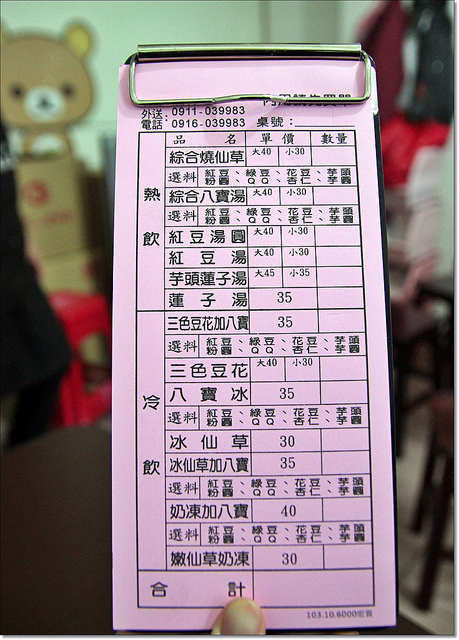 外送 0911-039983
電話 0916-039983 桌號：
品名 單價 數量
熱飲
綜合燒仙草 大40 小30
選料 紅豆、綠豆、花豆、芋頭
粉圓、QQ、杏仁、芋圓
綜合八寶湯 大40 小30
選料 紅豆、綠豆、花豆、芋頭
粉圓、QQ、杏仁、芋圓
紅豆湯圓 大40 小30
紅豆湯 大40 小30
芋頭蓮子湯 大45 小35
蓮子湯 35
冷飲
三色豆花加八寶 35
選料 紅豆、綠豆、花豆、芋頭
粉圓、QQ、杏仁、芋圓
三色豆花 大40 小30
八寶冰 35
選料 紅豆、綠豆、花豆、芋頭
粉圓、QQ、杏仁、芋圓
冰仙草 30
冰仙草加八寶 35
選料 紅豆、綠豆、花豆、芋頭
粉圓、QQ、杏仁、芋圓
奶凍加八寶 40
選料 紅豆、綠豆、花豆、芋頭
粉圓、QQ、杏仁、芋圓
嫩仙草奶凍 30
合計
103.10.6000